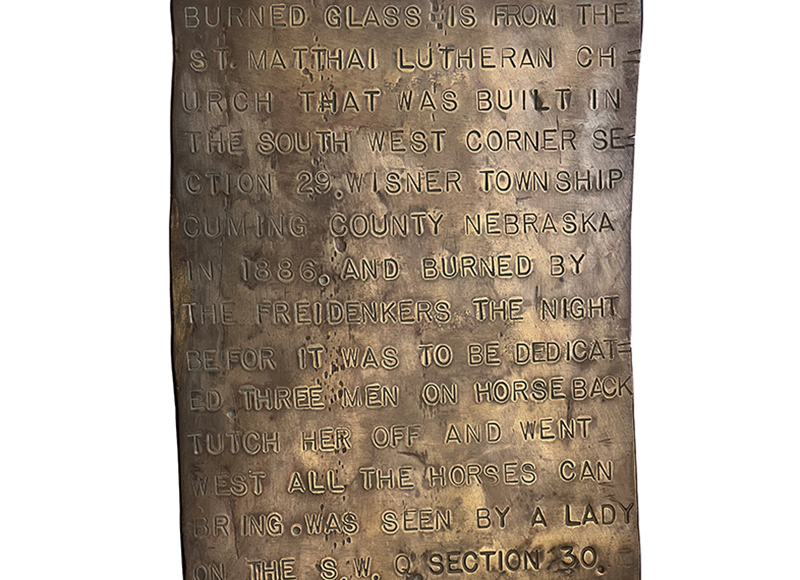 BURNED GLASS IS FROM THE
ST. MATTHAI LUTHERAN CH=
URCH THAT WAS BUILT IN
THE SOUTH WEST CORNER SE=
CTION 29. WISNER TOWNSHIP
CUMING COUNTY NEBRASKA
IN 1886. AND BURNED BY
THE FREIDENKERS THE NIGHT
BEFOR IT WAS TO BE DEDICAT=
ED THREE MEN ON HORSEBACK
TUTCH HER OFF AND WENT
WEST ALL THE HORSES CAN
BRING. WAS SEEN BY A LADY
ON THE S.W. Q SECTION 30.